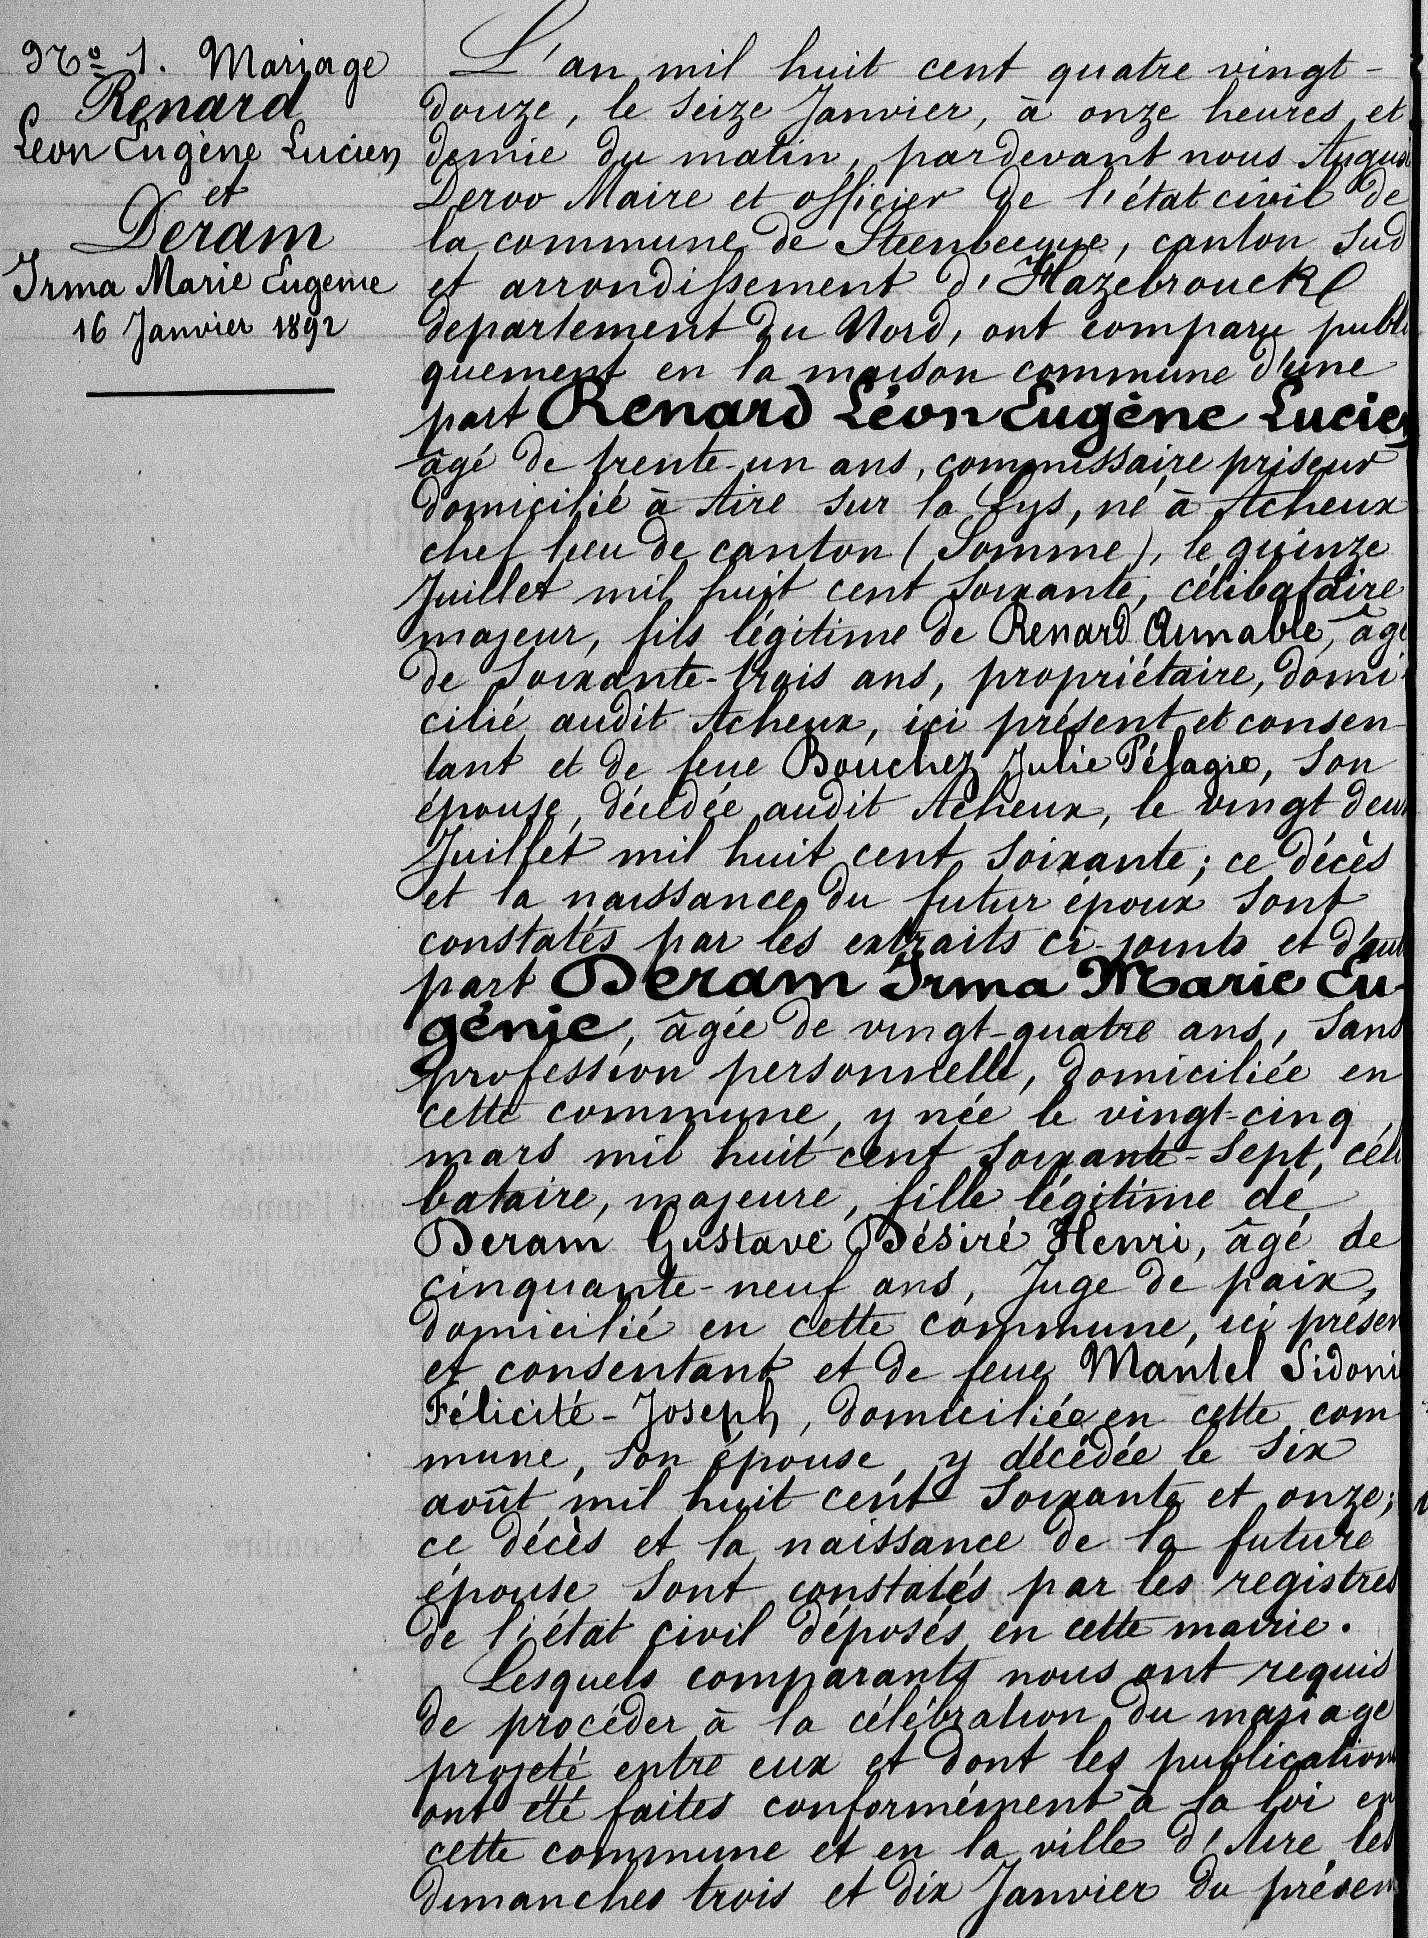 No 1. Mariage
Renard
Léon Eugène Lucien
et
Deram
Irma Marie Eugenie
16 Janvier 1892
L'an mil huit cent quatre vingt-
douze, le seize Janvier, à onze heures et
demie du matin, pardevant nous August
Deroo Maire et officier de l'état civil de
la commune de Steenbecque, canton sud
et arrondissement d'Hazebrouck
departement du Nord, ont comparu publi
quement en la maison commune d'une
part Renard Léon Eugène Lucien
âgé de trente-un ans, commissaire priseur
domicilié à Aire sur la Lys, né à Acheux
chef lieu de canton (Somme), le quinze
Juillet mil huit cent soixante, célibataire
majeur, fils légitime de Renard Aimable, âgé
de soixante-trois ans, propriétaire, domi-
cilié audit Acheux, ici présent et consen-
tant et de feue Bouchez Julie Pélagie, son
épouse, décédée audit Acheux, le vingt deux
Juillet mil huit cent soixante; ce décès
et la naissance du futur époux sont
constatés par les extraits ci-joints et d'aut
part Deram Irma Marie Eu-
génie, âgée de vingt-quatre ans, sans
profession personnelle, domiciliée en
cette commune, y née le vingt-cinq
mars mil huit cent soixante-sept, céli
bataire, majeure, fille légitime de
Deram Gustave Désiré Henri, âgé de
cinquante-neuf ans, Juge de paix,
domicilié en cette commune, ici présen
et consentant et de feue Mantel Sidoni
Félicité-Joseph, domiciliée en cette com
mune, son épouse, y décédée le six
août mil huit cent soixante et onze;
ce décès et la naissance de la future
épouse sont constatés par les registres
de l'état civil déposés en cette mairie.
Lesquels comparants nous ont requis
de procéder à la célébration du mariage
projeté entre eux et dont les publications
ont été faites conformément à la loi en
cette commune et en la ville d'Aire les
dimanches trois et dix Janvier du présen